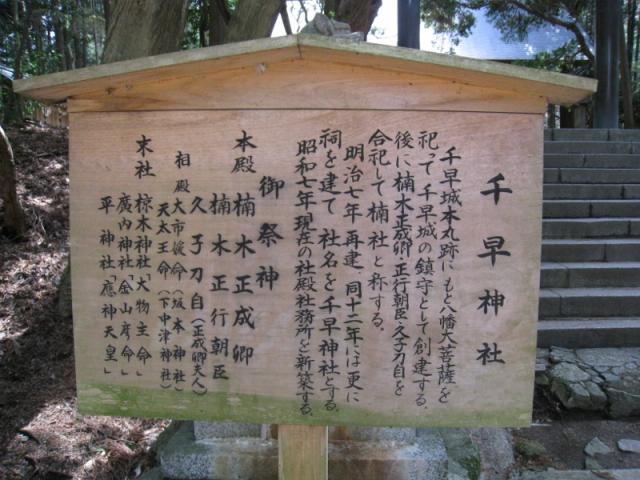 千早神社
千早城本丸跡にもと八幡大菩薩を
祀って千早城の鎮守として創建する。
後に楠木正成卿、正行朝臣、久子刀自を
合祀して楠社と称する。
明治七年再建、同十二年には更に
祠を建て社名を千早神社とする。
昭和七年現在の社殿社務所を新築する。
御祭神
本殿 楠木正成卿
楠木正行朝臣
久子刀自(正成卿夫人)
相殿 大市媛命(坂本神社)
天太玉命(下中津神社)
末社 椋木神社「大物主命」
廣内神社「金山彦命」
平神社「應神天皇」